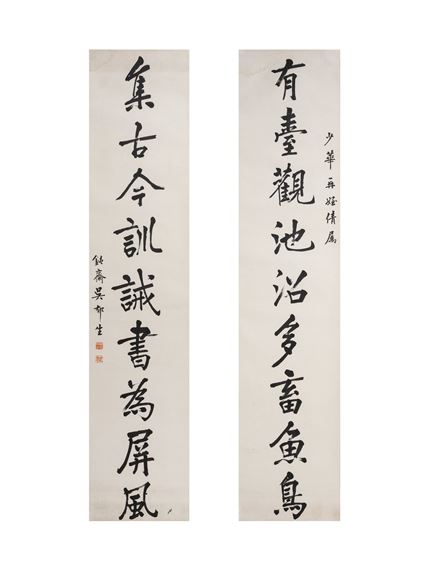 少華再姪倩屬
有臺觀池沼多畜魚鳥
集古今訓誡書為屏風
鈍齋吳郁生